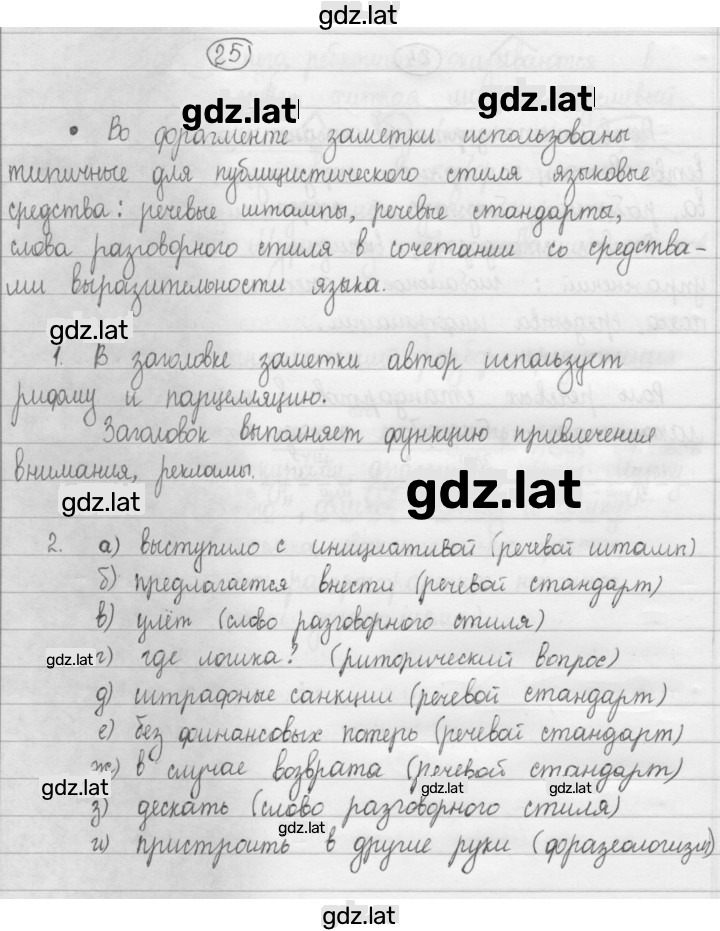 gdz.lat
25
gdz.lat gdz.lat
• Во фрагменте заметки использованы
типичные для публицистического стиля языковые
средства: речевые штампы, речевые стандарты,
слова разговорного стиля в сочетании со средства-
ми выразительности языка.
gdz.lat
1. В заголовке заметки автор использует
рифму и парцелляцию.
Заголовок выполняет функцию привлечения
внимания, рекламы.
gdz.lat gdz.lat
2. а) выступило с инициативой (речевой штамп)
б) предлагается внести (речевой стандарт)
в) улёт (слово разговорного стиля)
gdz.lat г) где логика? (риторический вопрос)
д) штрафные санкции (речевой стандарт)
е) без финансовых потерь (речевой стандарт)
ж) в случае возврата (речевой стандарт)
gdz.lat gdz.lat gdz.lat
з) дескать (слово разговорного стиля)
gdz.lat
и) пристроить в другие руки (фразеологизм)
gdz.lat